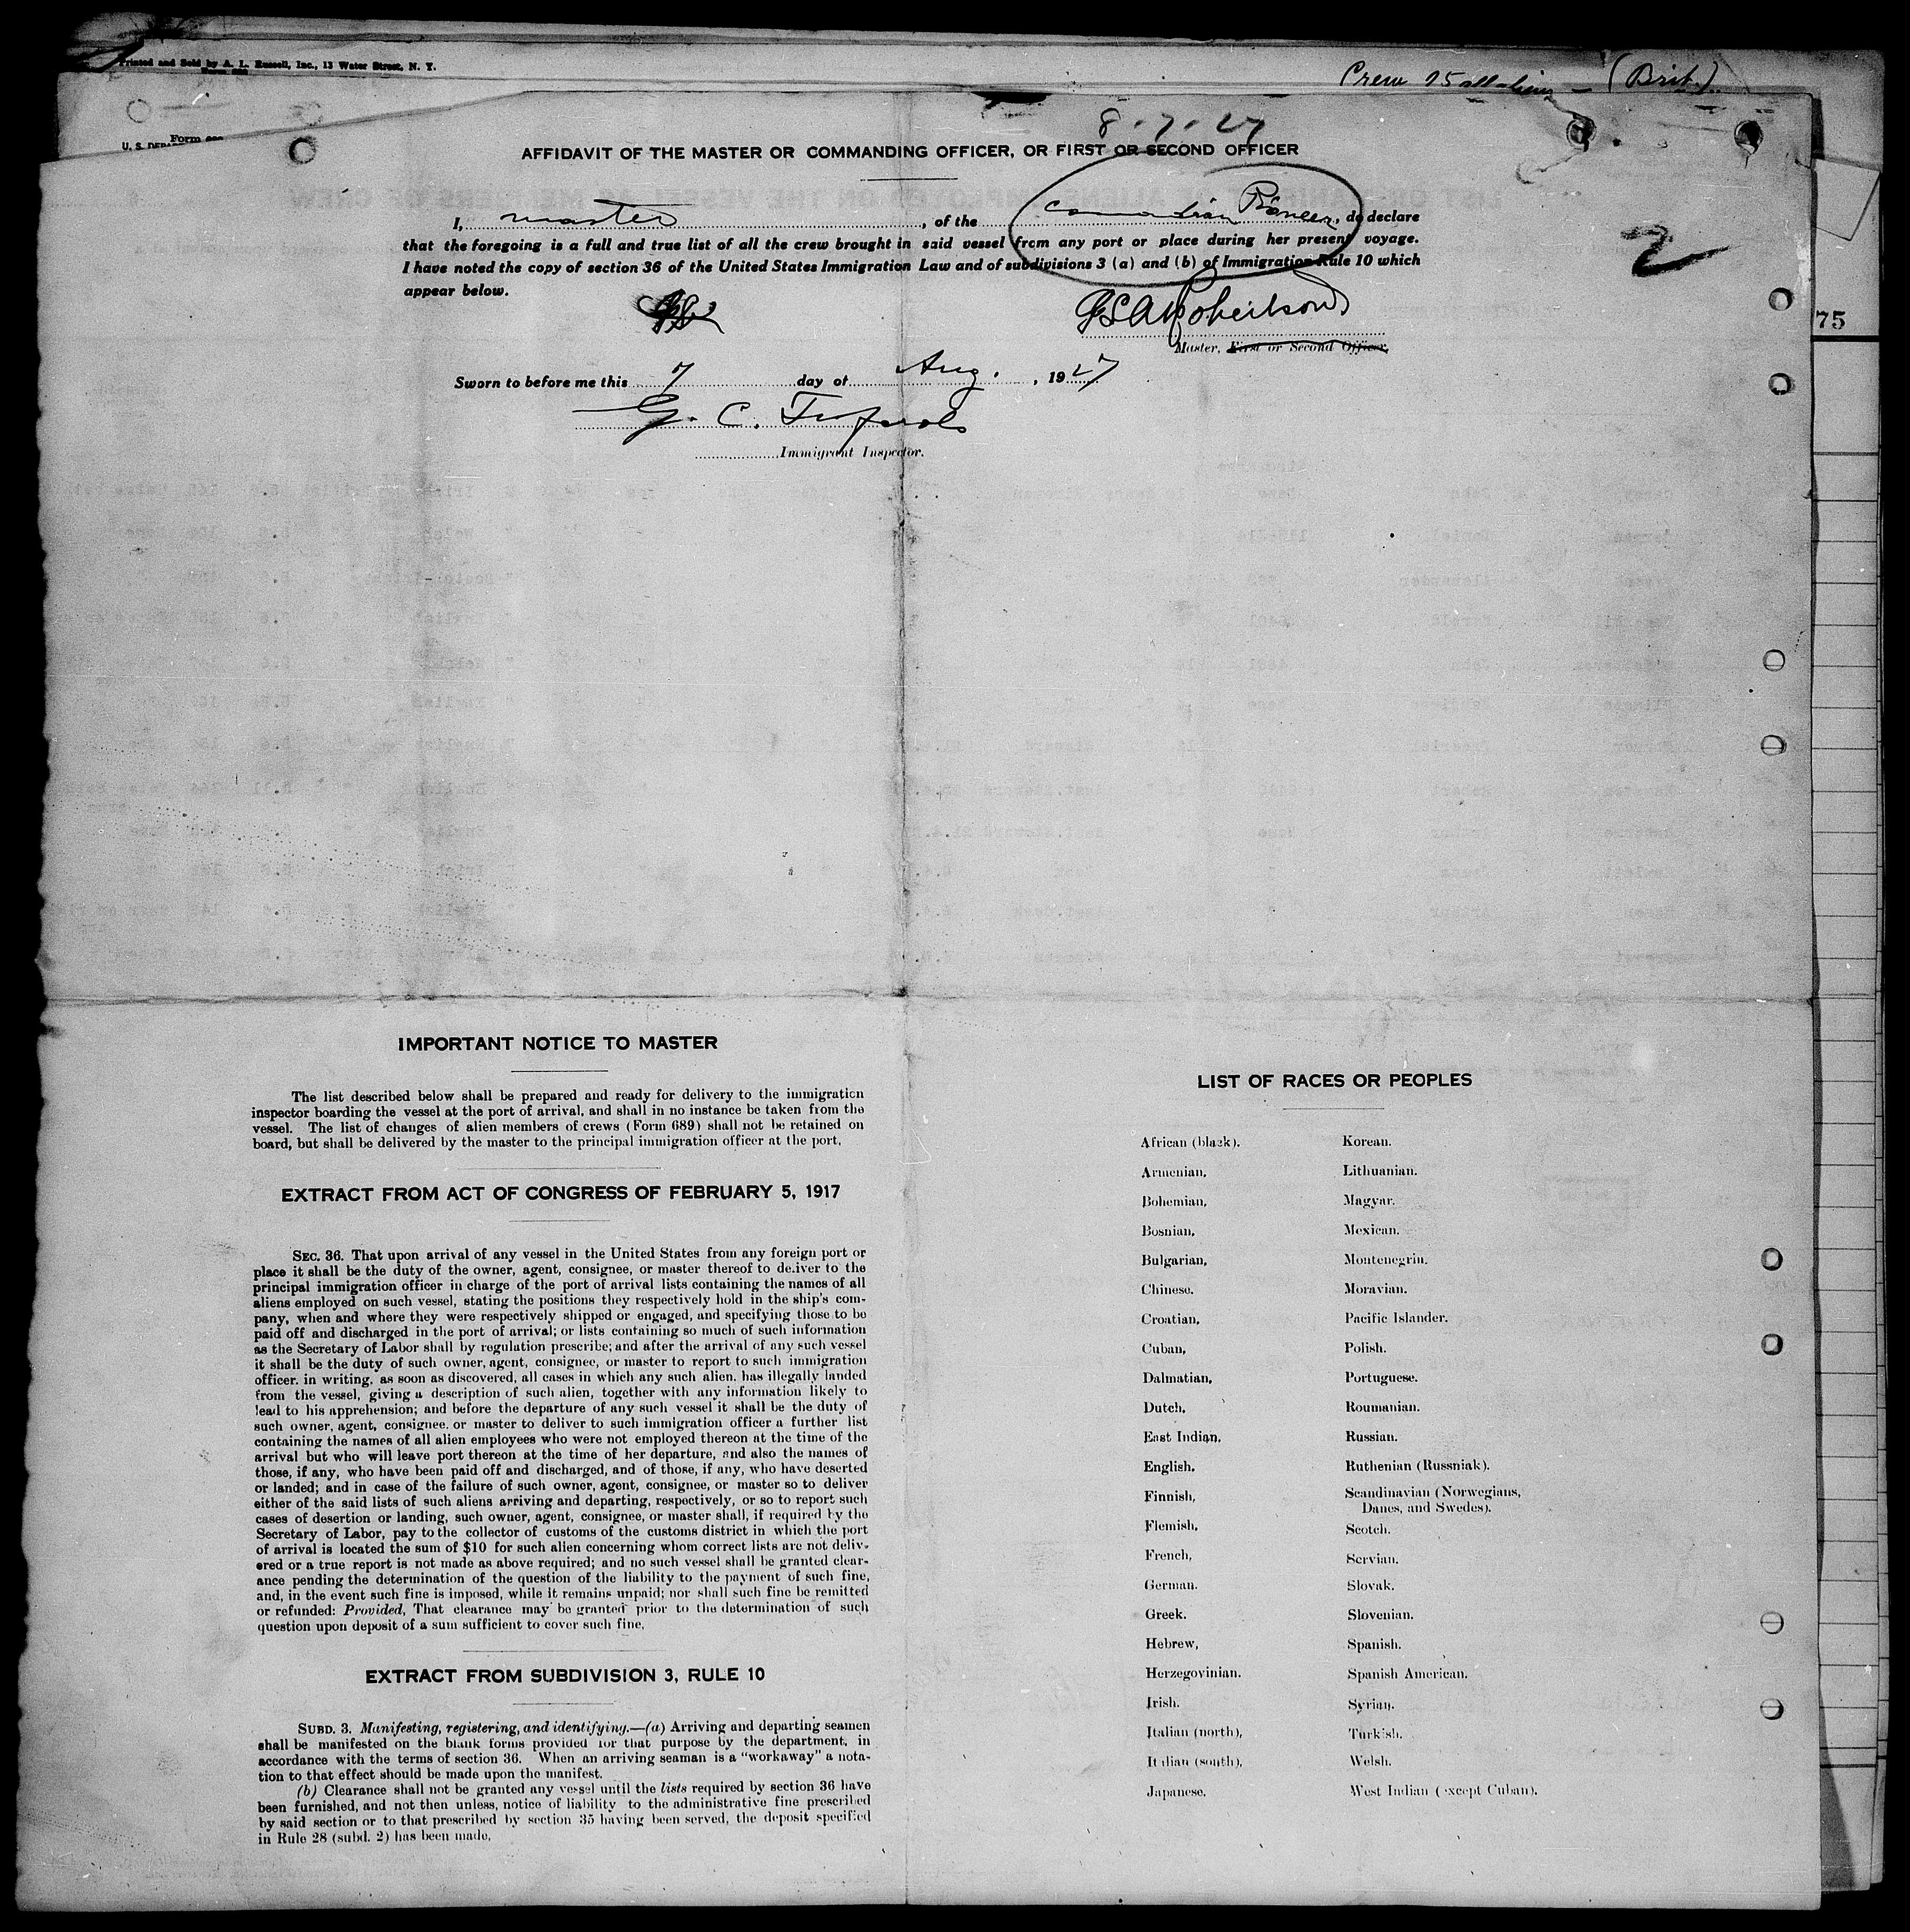 Printed and Sold by A. L. Russell, Inc., 13 Water Street, N. Y.
Crew 75 all aliens — (Brit.).
Form
U. S.
8-7-27
AFFIDAVIT OF THE MASTER OR COMMANDING OFFICER, OR FIRST OR SECOND OFFICER
I, master, of the Canadian Pioneer, do declare
that the foregoing is a full and true list of all the crew brought in said vessel from any port or place during her present voyage.
I have noted the copy of section 36 of the United States Immigration Law and of subdivisions 3 (a) and (b) of Immigration Rule 10 which
appear below.
2
75
Robertson
Master, First or Second Officer.
Sworn to before me this 7 day of Aug., 1927
G. C.
Immigrant Inspector.
IMPORTANT NOTICE TO MASTER
The list described below shall be prepared and ready for delivery to the immigration
inspector boarding the vessel at the port of arrival, and shall in no instance be taken from the
vessel. The list of changes of alien members of crews (Form 689) shall not be retained on
board, but shall be delivered by the master to the principal immigration officer at the port.
EXTRACT FROM ACT OF CONGRESS OF FEBRUARY 5, 1917
SEC. 36. That upon arrival of any vessel in the United States from any foreign port or
place it shall be the duty of the owner, agent, consignee, or master thereof to deliver to the
principal immigration officer in charge of the port of arrival lists containing the names of all
aliens employed on such vessel, stating the positions they respectively hold in the ship's com-
pany, when and where they were respectively shipped or engaged, and specifying those to be
paid off and discharged in the port of arrival; or lists containing so much of such information
as the Secretary of Labor shall by regulation prescribe; and after the arrival of any such vessel
it shall be the duty of such owner, agent, consignee, or master to report to such immigration
officer, in writing, as soon as discovered, all cases in which any such alien, has illegally landed
from the vessel, giving a description of such alien, together with any information likely to
lead to his apprehension; and before the departure of any such vessel it shall be the duty of
such owner, agent, consignee, or master to deliver to such immigration officer a further list
containing the names of all alien employees who were not employed thereon at the time of the
arrival but who will leave port thereon at the time of her departure, and also the names of
those, if any, who have been paid off and discharged, and of those, if any, who have deserted
or landed; and in case of the failure of such owner, agent, consignee, or master so to deliver
either of the said lists of such aliens arriving and departing, respectively, or so to report such
cases of desertion or landing, such owner, agent, consignee, or master shall, if required by the
Secretary of Labor, pay to the collector of customs of the customs district in which the port
of arrival is located the sum of $10 for such alien concerning whom correct lists are not deliv-
ered or a true report is not made as above required; and no such vessel shall be granted clear-
ance pending the determination of the question of the liability to the payment of such fine,
and, in the event such fine is imposed, while it remains unpaid; nor shall such fine be remitted
or refunded: Provided, That clearance may be granted prior to the determination of such
question upon deposit of a sum sufficient to cover such fine.
EXTRACT FROM SUBDIVISION 3, RULE 10
SUBD. 3. Manifesting, registering, and identifying.—(a) Arriving and departing seamen
shall be manifested on the blank forms provided for that purpose by the department, in
accordance with the terms of section 36. When an arriving seaman is a "workaway" a nota-
tion to that effect should be made upon the manifest.
(b) Clearance shall not be granted any vessel until the lists required by section 36 have
been furnished, and not then unless, notice of liability to the administrative fine prescribed
by said section or to that prescribed by section 35 having been served, the deposit specified
in Rule 28 (subd. 2) has been made.
LIST OF RACES OR PEOPLES
African (black).
Armenian,
Bohemian,
Bosnian,
Bulgarian,
Chinese.
Croatian,
Cuban,
Dalmatian,
Dutch,
East Indian,
English.
Finnish,
Flemish,
French,
German.
Greek.
Hebrew,
Herzegovinian.
Irish.
Italian (north),
Italian (south),
Japanese.
Korean.
Lithuanian.
Magyar.
Mexican.
Montenegrin.
Moravian.
Pacific Islander.
Polish.
Portuguese.
Roumanian.
Russian.
Ruthenian (Russniak).
Scandinavian (Norwegians,
Danes, and Swedes).
Scotch.
Servian.
Slovak.
Slovenian.
Spanish.
Spanish American.
Syrian.
Turkish.
Welsh.
West Indian (except Cuban).